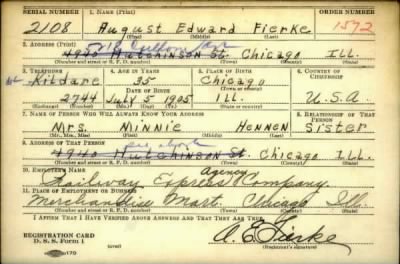 SERIAL NUMBER 1. NAME (Print) ORDER NUMBER
2108 August Edward Fierke 1572
(First) (Middle) (Last)
2. ADDRESS (Print)
4940 HUTCHINSON St. Chicago ILL.
(Number and street or R. F. D. number) (Town) (County) (State)
3. TELEPHONE 4. AGE IN YEARS 5. PLACE OF BIRTH 6. COUNTRY OF CITIZENSHIP
Kildare 35 Chicago
DATE OF BIRTH
2744 July 5 1905 Ill. U.S.A.
(Exchange) (Number) (Mo.) (Day) (Yr.) (State or country)
7. NAME OF PERSON WHO WILL ALWAYS KNOW YOUR ADDRESS 8. RELATIONSHIP OF THAT PERSON
Mrs. MINNIE HENNEN Sister
(Mr., Mrs., Miss) (First) (Middle) (Last)
9. ADDRESS OF THAT PERSON
4940 HUTCHINSON St. Chicago ILL.
(Number and street or R. F. D. number) (Town) (County) (State)
10. EMPLOYER'S NAME
Railway Express Agency Company
11. PLACE OF EMPLOYMENT OR BUSINESS
Merchandise Mart. Chicago Ill.
(Number and street or R. F. D. number) (Town) (County) (State)
I AFFIRM THAT I HAVE VERIFIED ABOVE ANSWERS AND THAT THEY ARE TRUE.
REGISTRATION CARD
D. S. S. Form 1 A. E. Fierke
(Registrant's signature)